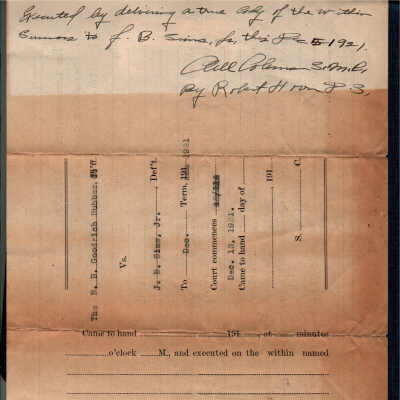 Executed by delivering a true copy of the within
Summons to J. B. Sims, Jr, this Dec 1921.
Will Coleman S.M.C.
By Robert Horn D.S.
The B. B. Goodrich Rubber, Pl'ff.
Vs.
J. B. Sims, Jr., Def't.
To Dec. Term, 191 1921
Court commences
Dec. 13, 1921.
Came to hand day of
191
S. C.
Came to hand 191 , at minutes
o'clock M., and executed on the within named